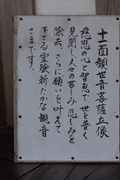 十一面観世音菩薩立像
慈悲の心と智恵で、世を普く
見聞し、人々の苦しみ悲しみを
除去、さらに願いを叶えて
下さる霊験新たかな観音
さまです。